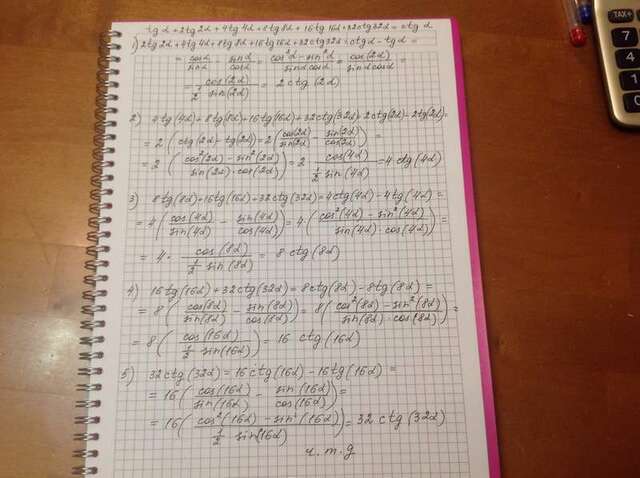 tg α + 2tg 2α + 4tg 4α + 8tg 8α + 16tg 16α + 32ctg 32α = ctg α
1) 2tg 2α + 4tg 4α + 8tg 8α + 16tg 16α + 32ctg 32α = ctg α - tg α =
= cos α / sin α - sin α / cos α = (cos²α - sin²α) / (sin α cos α) = cos(2α) / (sin α cos α) =
= cos(2α) / (½ sin(2α)) = 2 ctg(2α)
2) 4tg(4α) + 8tg(8α) + 16tg(16α) + 32ctg(32α) = 2ctg(2α) - 2tg(2α) =
= 2(ctg(2α) - tg(2α)) = 2(cos(2α) / sin(2α) - sin(2α) / cos(2α)) =
= 2((cos²(2α) - sin²(2α)) / (sin(2α) · cos(2α))) = 2 cos(4α) / (½ sin(4α)) = 4 ctg(4α)
3) 8tg(8α) + 16tg(16α) + 32ctg(32α) = 4ctg(4α) - 4tg(4α) =
= 4(cos(4α) / sin(4α) - sin(4α) / cos(4α)) = 4·((cos²(4α) - sin²(4α)) / (sin(4α) · cos(4α))) =
= 4 · cos(8α) / (½ sin(8α)) = 8 ctg(8α)
4) 16tg(16α) + 32ctg(32α) = 8ctg(8α) - 8tg(8α) =
= 8(cos(8α) / sin(8α) - sin(8α) / cos(8α)) = 8((cos²(8α) - sin²(8α)) / (sin(8α) · cos(8α))) =
= 8(cos(16α) / (½ sin(16α))) = 16 ctg(16α)
5) 32ctg(32α) = 16ctg(16α) - 16tg(16α) =
= 16(cos(16α) / sin(16α) - sin(16α) / cos(16α)) =
= 16((cos²(16α) - sin²(16α)) / (½ sin(16α))) = 32 ctg(32α)
ч.т.д
TAX+
7
4
1
0